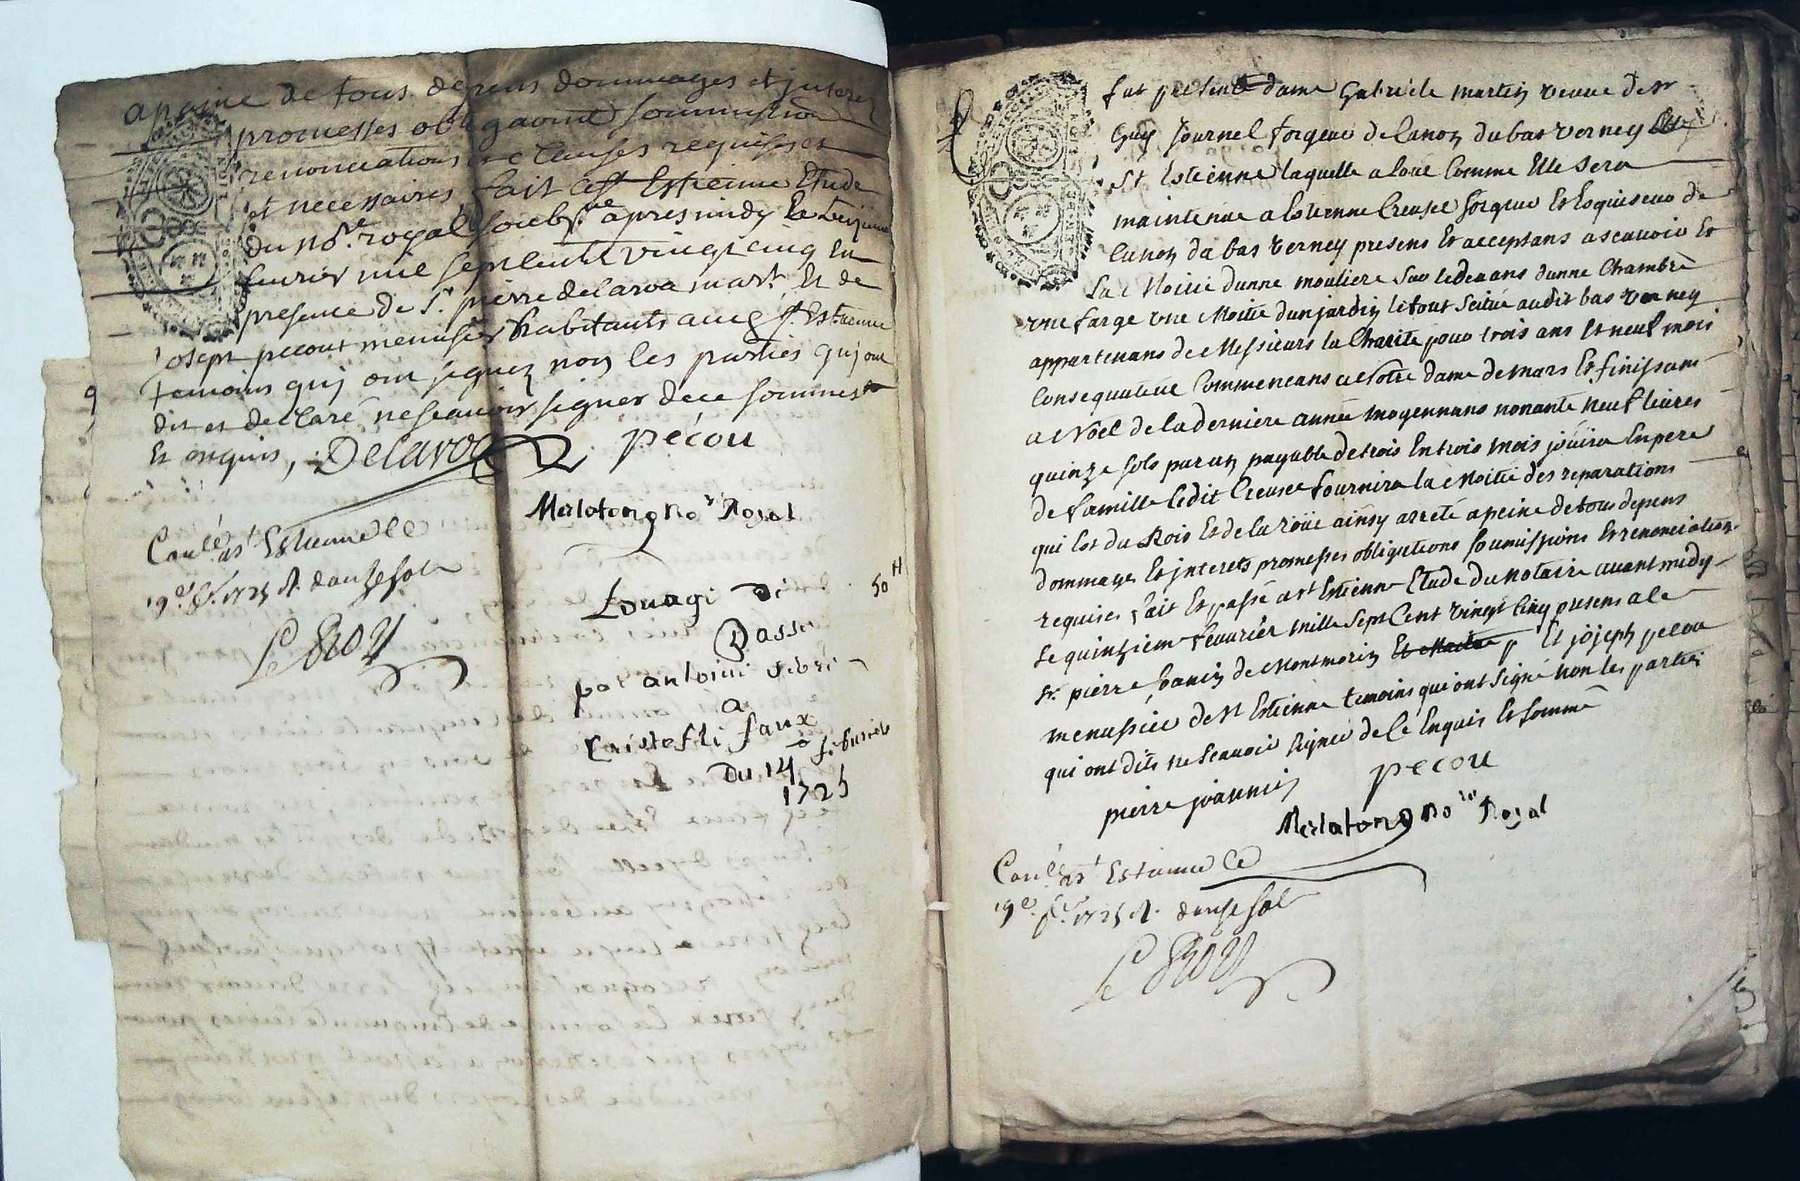 apeine de tous depens dommages et interes
promesses obligaõns soummission
renonciations et Clauses requises et
et necessaires fait a St Estienne Etude
du no.re royal soubs.ne apres midy le
feurier mil sept Cents vingt cinq En
presence de Sr pierre delaroa mart. Et de
Joseph pecout menusier habitants aud St. Estienne
temoins quj ont signez non les parties quj ont
dit et declaré ne scauoir signer de ce sommes
Et enquis,
Delaroa
pecou
Merlatong no.re Royal
Conlé a st Estienne le
19e fr. 1725 R. douze sols
Le ROY
Louagi di
50 tt
Basse
par antoini
a
Cristofli faux
Du 14 febvrier
1725
fut presente dame Gabriele martin veuue de Sr
Guy Journel forgeur de Canon du bas verney
St Estienne laquelle a loué Comme Elle sera
maintenue a Estienne Creuset forgeur Et Esquiseur de
Canon du bas verney present Et acceptant ascauoir Et
La Moitié dunne mouliere Sur le deuans dunne Chambre
vne farge vne Moitié dun jardin le tout Scitué audit bas verney
appartenans de Messieurs la Charité pour trois ans Et neuf mois
Consequutius Commencans a Notre dame de mars Et finissant
a Noel de la derniere année moyennans nonante neuf liures
quinze sols par an payable de trois En trois mois jouira En pere
de famille ledit Creuset fournira la Moitié des reparations
qui Est du Bois Et de la roüe ainsy arreté a peine de tous depens
dommages Et jnterets promesses obligations soumissions Et renonciations
requises, fait Et passé a st Estienne Etude du notaire auant midy
Le quinzieme feuurier mille sept Cent vingt Cinq presens a Ce
Sr. pierre Joanin de Montmorin Et joseph pecou
menusier de St Estienne temoins qui ont Signé non les parties
qui ont dits ne Scauoir Signer de Ce Enquis Et sommé
pierre joannin
pecou
Merlatong no.re Royal
Conlé a st Estienne le
19e fr. 1725 R. douze sols
Le ROY